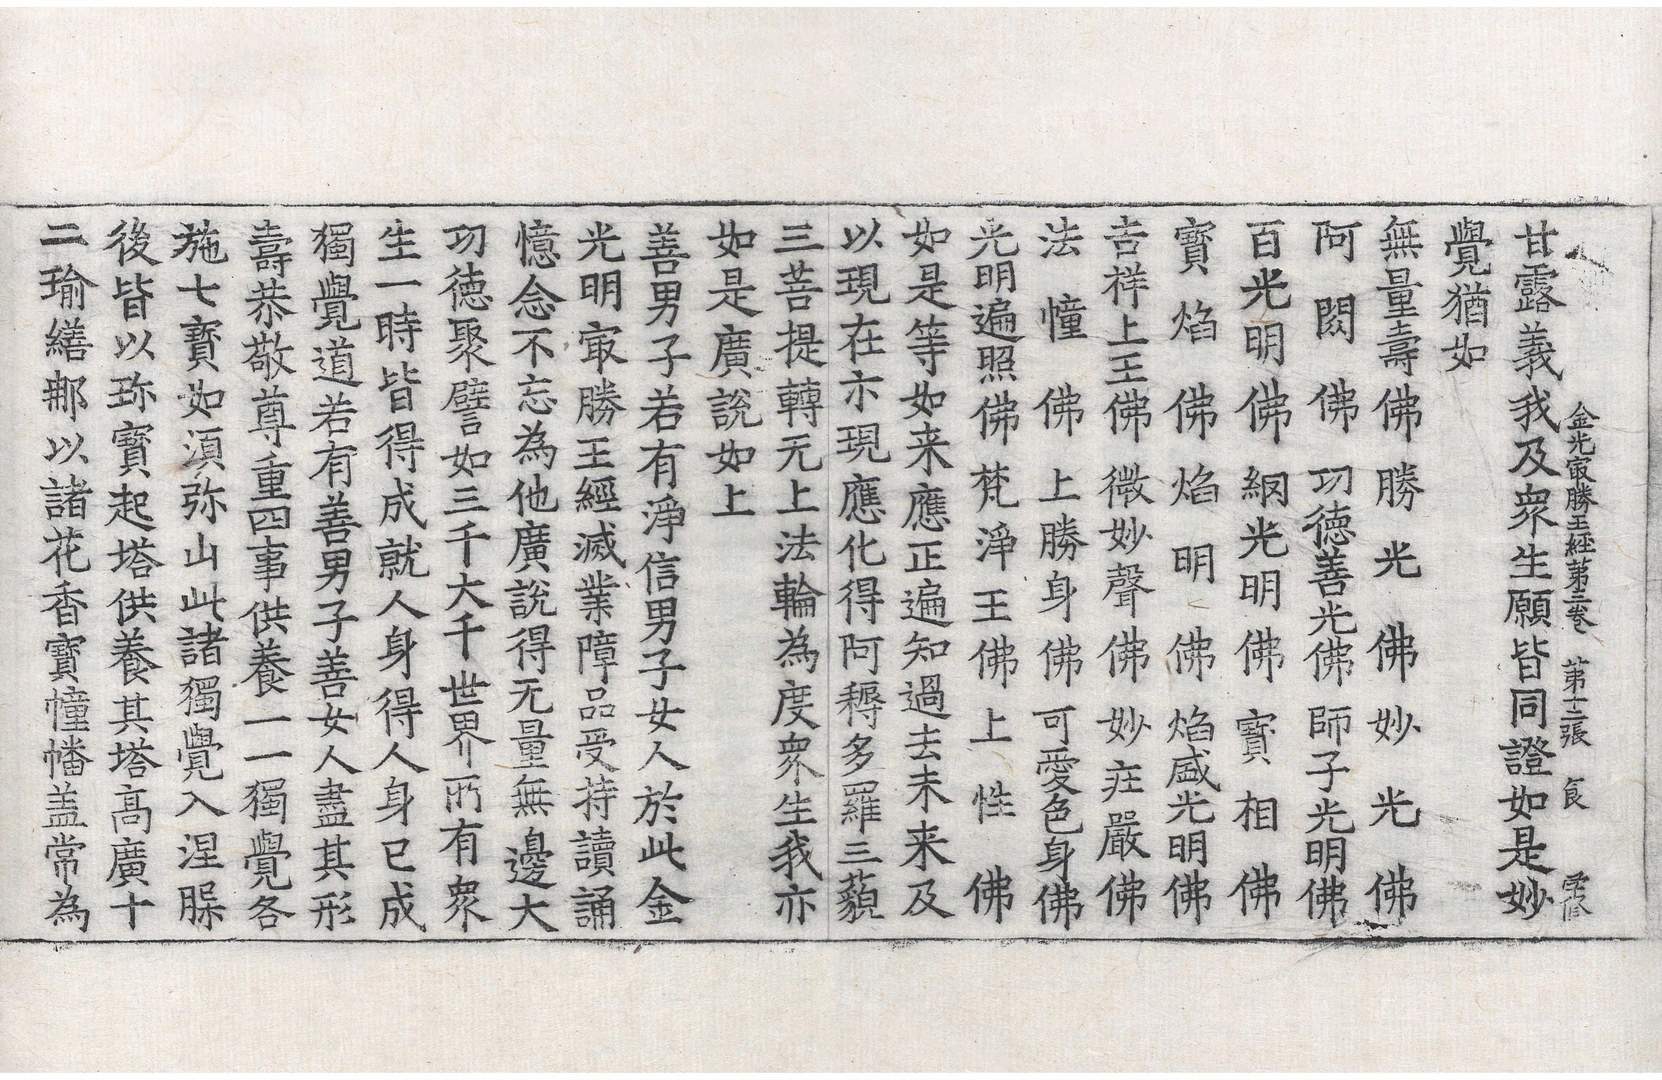 金光㝡勝王經第三卷　第十二張　食
甘露義我及衆生願皆同證如是妙
覺猶如
無量壽佛　勝光佛　妙光佛
阿閦佛　功德善光佛　師子光明佛
百光明佛　網光明佛　寶相佛
寶焰佛　焰明佛　焰盛光明佛
吉祥上王佛　微妙聲佛　妙莊嚴佛
法幢佛　上勝身佛　可愛色身佛
光明遍照佛　梵淨王佛　上性佛
如是等如来應正遍知過去未来及
以現在亦現應化得阿耨多羅三藐
三菩提轉无上法輪為度衆生我亦
如是廣說如上
善男子若有淨信男子女人於此金
光明㝡勝王經滅業障品受持讀誦
憶念不忘為他廣說得无量無邊大
功德聚譬如三千大千世界所有衆
生一時皆得成就人身得人身已成
獨覺道若有善男子善女人盡其形
壽恭敬尊重四事供養一一獨覺各
施七寶如湏弥山此諸獨覺入涅槃
後皆以珎寶起塔供養其塔高廣十
二踰繕那以諸花香寶幢幡盖常為